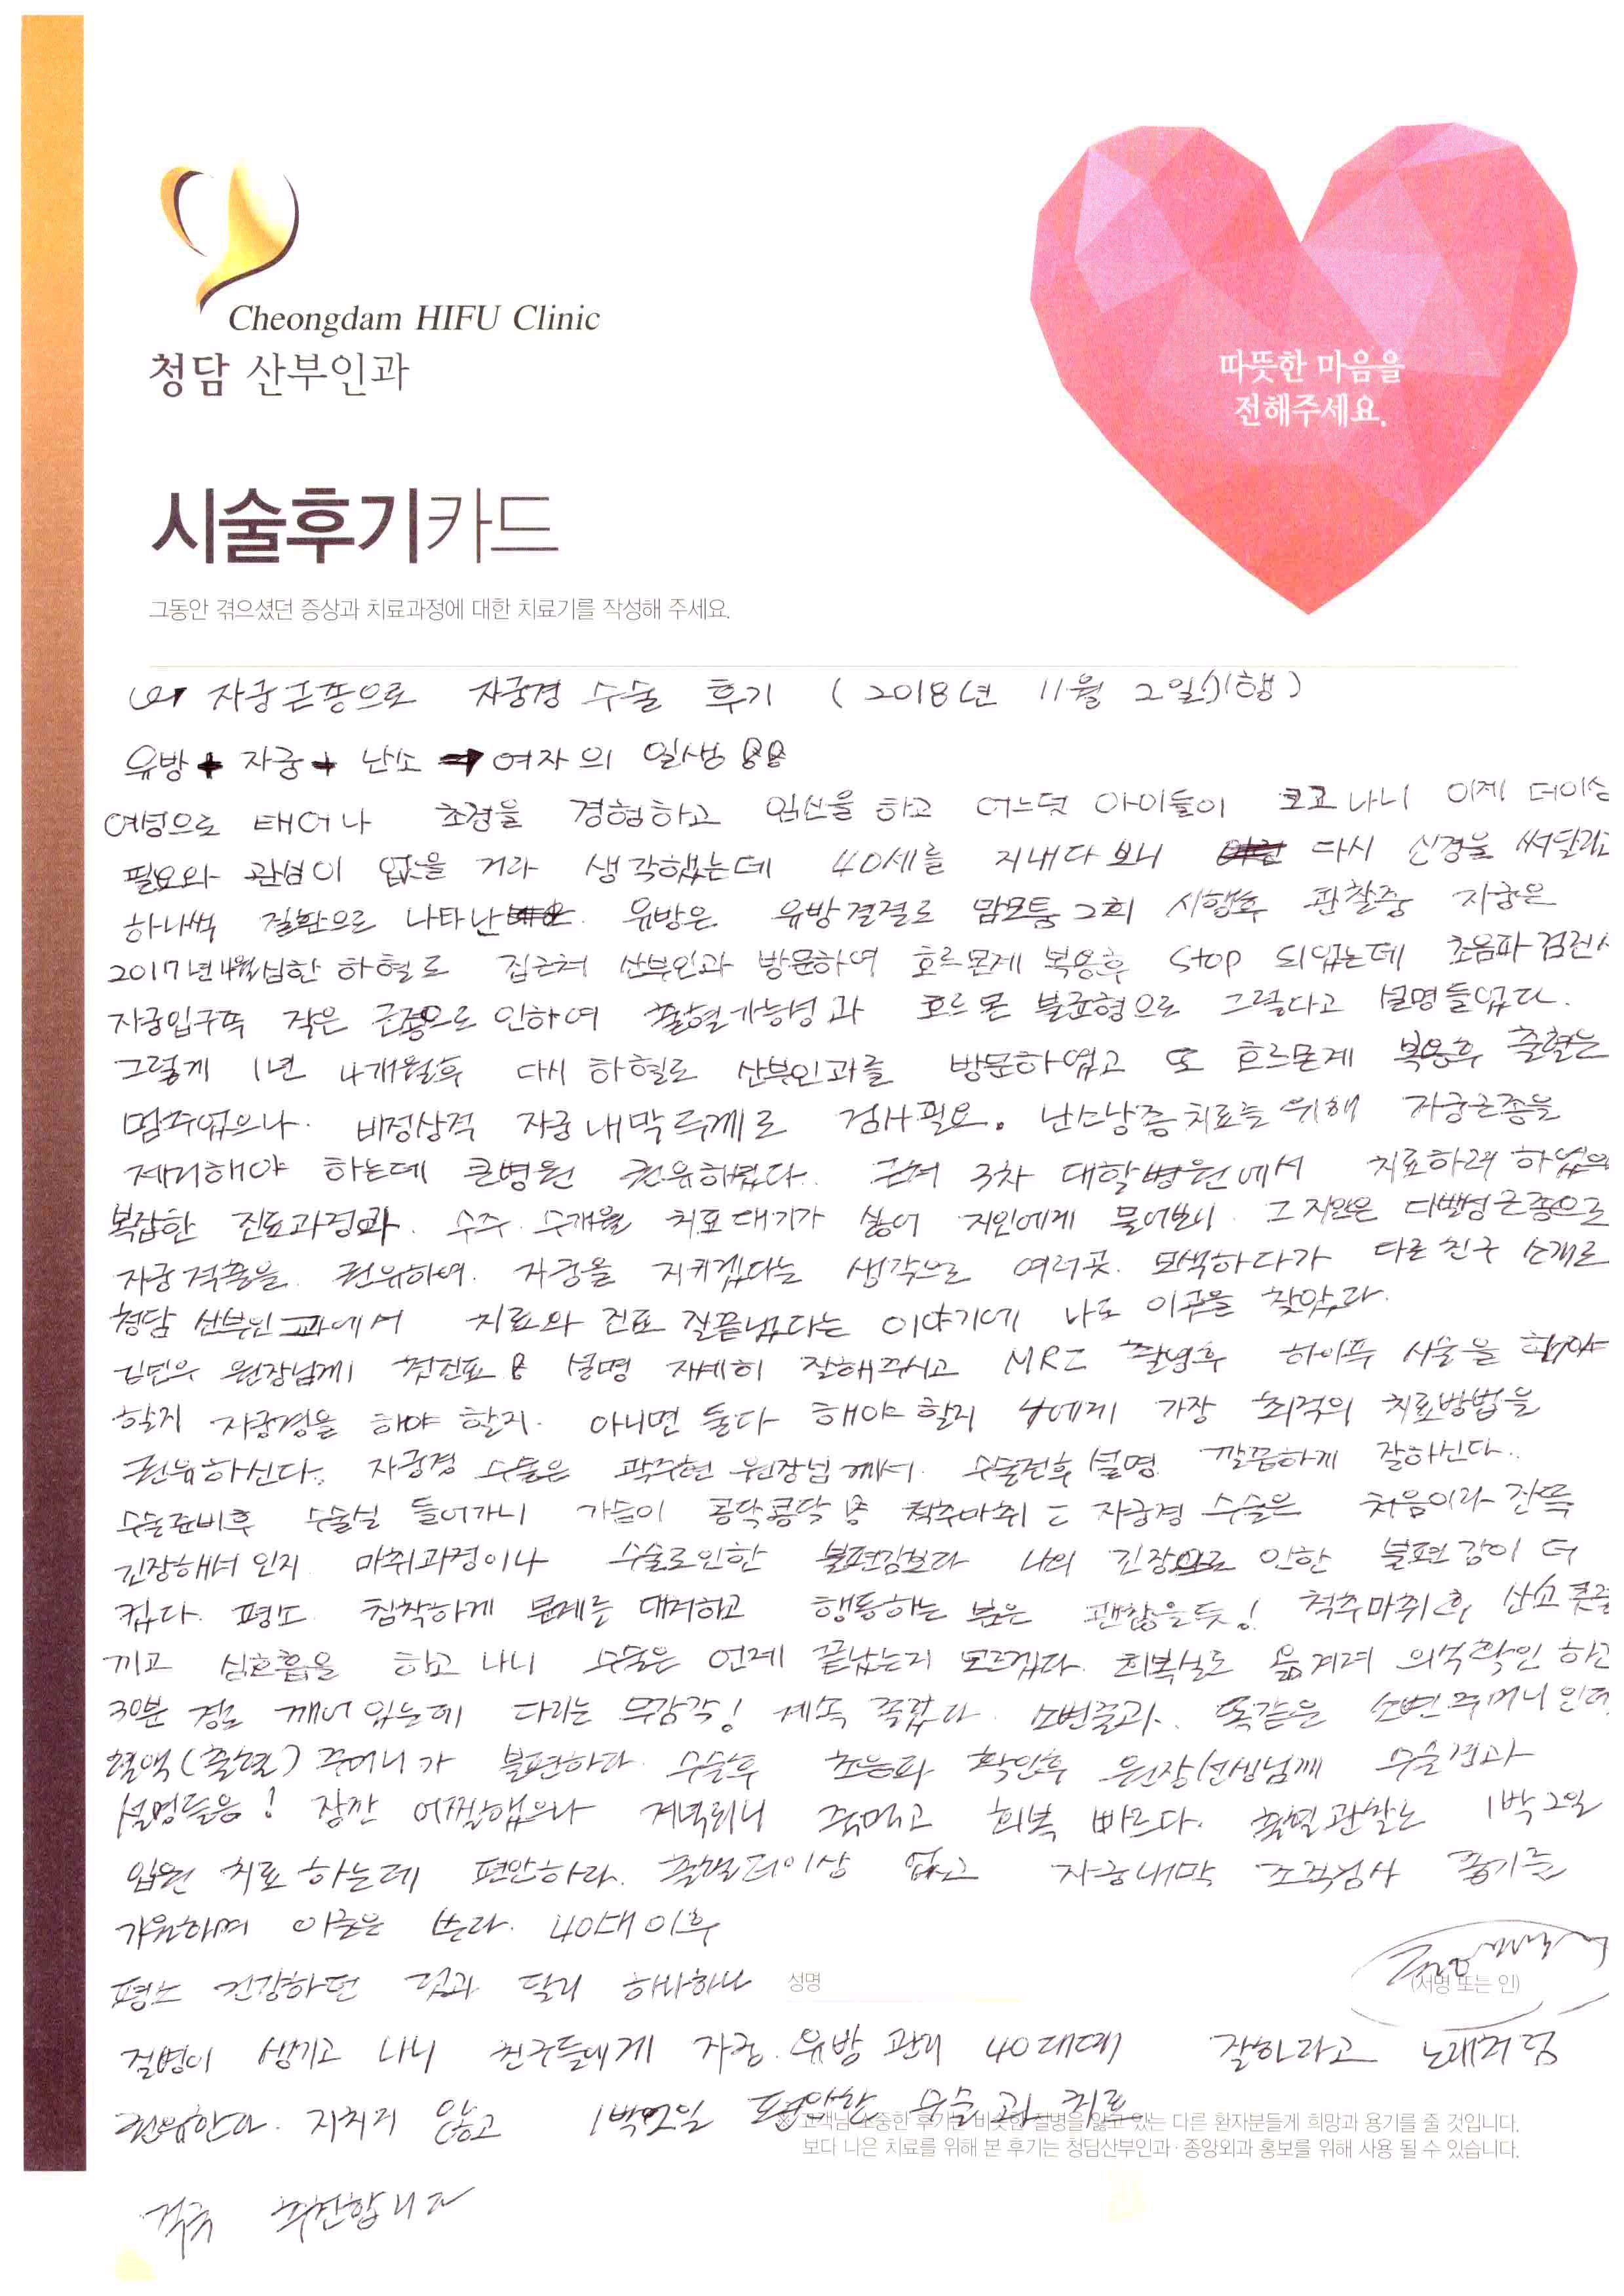 Cheongdam HIFU Clinic
청담 산부인과
따뜻한 마음을
전해주세요.
시술후기카드
그동안 겪으셨던 증상과 치료과정에 대한 치료기를 작성해 주세요.
자궁근종으로 자궁경 수술 후기 ( 2018년 11월 2일 시행 )
유방 + 자궁 + 난소 → 여자의 일생
여성으로 태어나 초경을 경험하고 임신을 하고 어느덧 아이들이 크고 나니 이제 더이상
필요와 관심이 없을 거라 생각했는데 40세를 지내다 보니 다시 신경을 써달라고
하나씩 질환으로 나타난 유방은 유방결절로 맘모톰 2회 시행후 관찰중 자궁은
2017년 4월 심한 하혈로 집근처 산부인과 방문하여 호르몬제 복용후 stop 되었는데 초음파 검진시
자궁입구쪽 작은 근종으로 인하여 출혈가능성과 호르몬 불균형으로 그렇다고 설명들었다.
그렇게 1년 4개월후 다시 하혈로 산부인과를 방문하였고 또 호르몬제 복용후 출혈은
멈추었으나. 비정상적 자궁내막 두께로 검사필요. 난소낭종치료를 위해 자궁근종을
제거해야 하는데 큰병원 권유하였다. 근처 3차 대학병원에서 치료하려 하였으
복잡한 진료과정과. 수주. 수개월 치료대기가 싫어 지인에게 물어보니. 그 지인은 다발성근종으로
자궁적출을 권유하여. 자궁을 지키겠다는 생각으로 여러곳. 모색하다가 다른 친구 소개로
청담 산부인과에서 치료와 진료 잘끝냈다는 이야기에 나도 이곳을 찾았다.
김민우 원장님께 첫진료 & 설명 자세히 잘해주시고 MRI 촬영후 하이푸 시술을 해야
할지 자궁경을 해야 할지. 아니면 둘다 해야 할지 나에게 가장 최적의 치료방법을
권유하신다. 자궁경 수술은 곽주현 원장님께서. 수술전후 설명 깔끔하게 잘하신다.
수술준비후 수술실 들어가니 가슴이 콩닥콩닥 척추마취 자궁경 수술은 처음이라 잔뜩
긴장해서인지 마취과정이나 수술로인한 불편감보다 나의 긴장으로 인한 불편감이 더
컸다. 평소 침착하게 문제를 대처하고 행동하는 분은 괜찮을듯! 척추마취후, 산소콧줄
끼고 심호흡을 하고 나니 수술은 언제 끝났는지 모르겠다. 회복실로 옮겨져 의식확인 하고
30분 정도 깨어 있는데 다리는 무감각! 계속 졸렸다. 소변줄과. 똑같은 소변주머니 인데
혈액(출혈) 주머니가 불편하다. 수술후 초음파 확인후 원장선생님께 수술경과
설명들음! 잠깐 어찔했으나 저녁되니 죽먹고 회복 빠르다. 출혈관찰는 1박2일
입원 치료 하는데 편안하다. 출혈더이상 없고 자궁내막 조직검사 좋기를
기원하며 이글은 쓴다. 40대 이후
평소 건강하던 것과 달리 하나하나
성명
(서명 또는 인)
질병이 생기고 나니 친구들에게 자궁. 유방 관리 40대때 잘하라고 노래처럼
권유한다. 지치지 않고 1박2일 편안한 수술과 치료
※ 고객님 소중한 후기는 비슷한 질병을 앓고 있는 다른 환자분들게 희망과 용기를 줄 것입니다.
보다 나은 치료를 위해 본 후기는 청담산부인과·중앙외과 홍보를 위해 사용 될 수 있습니다.
적극 추천합니다